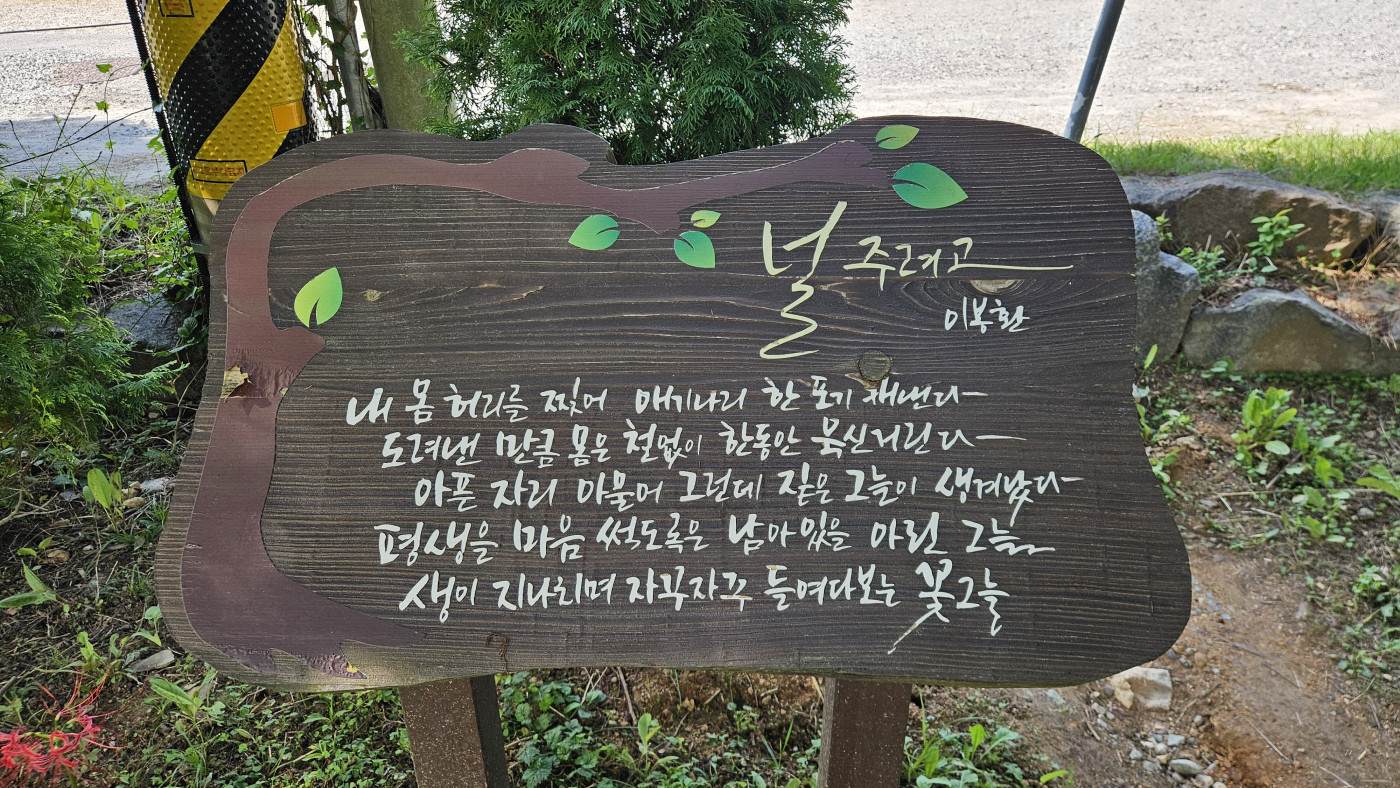 널 주려고
이봉환
내 몸 허리를 찢어 애기나리 한 포기 캐낸다
도려낸 만큼 몸은 철없이 한동안 욱신거린다
아픈 자리 아물어 그런데 짙은 그늘이 생겨났다
평생을 마음 썩도록은 남아있을 아린 그늘
생이 지나치며 자꾸자꾸 들여다보는 꽃그늘